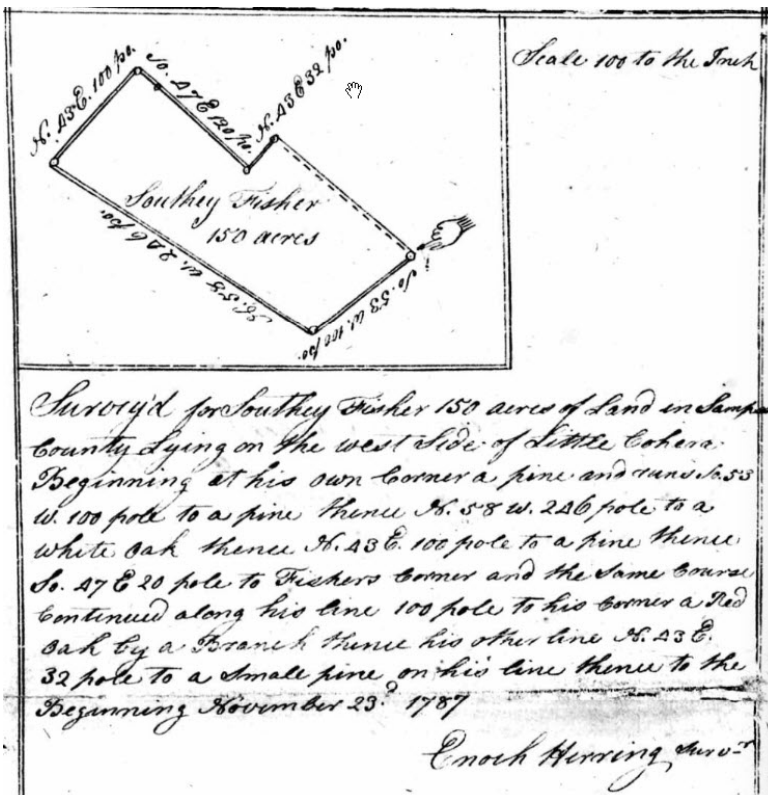 Scale 100 to the Inch
N. 43 E. 100 po.
So. 47 E 120 po.
N. 43 E 32 po.
Southey Fisher
150 acres
N. 58 W. 246 po.
So. 53 W. 100 po.
Survey'd for Southey Fisher 150 acres of Land in Samps
County Lying on the west Side of Little Cohera
Beginning at his own Corner a pine and runs So. 53
W. 100 pole to a pine thence N. 58 W. 246 pole to a
white Oak thence N. 43 E. 100 pole to a pine thence
So. 47 E 20 pole to Fishers Corner and the Same Course
Continued along his line 100 pole to his Corner a Red
Oak by a Branch thence his other line N. 43 E.
32 pole to a Small pine on his line thence to the
Beginning November 23d. 1787
Enoch Herring Survr